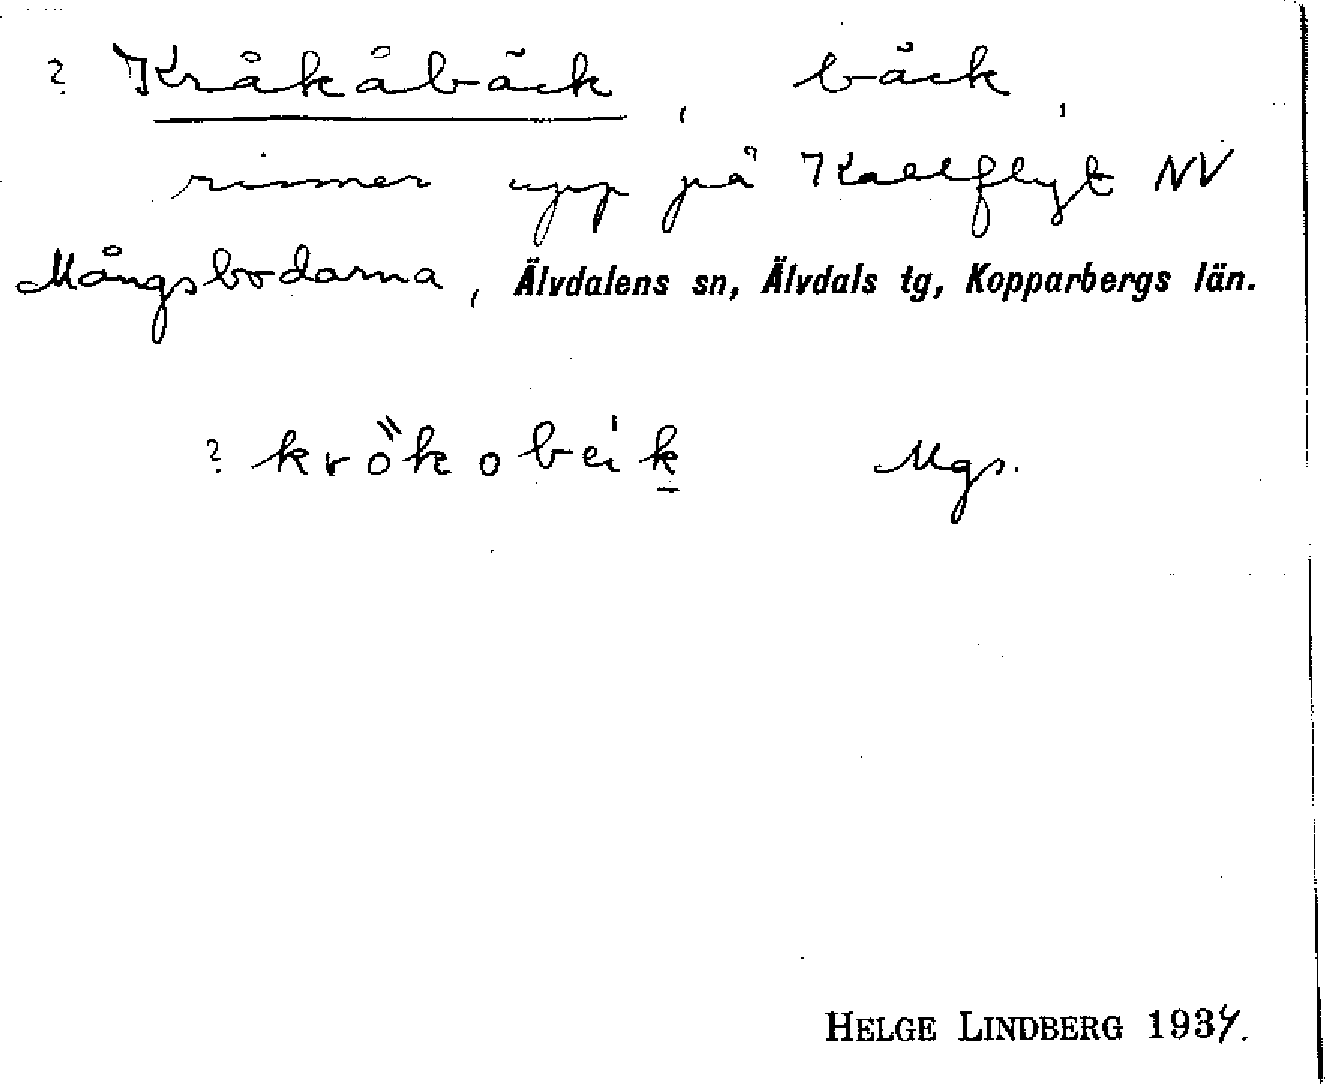 ? Kråkåbäck, bäck,
rinner upp på Kallflyt NV
Mångsbodarna, Älvdalens sn, Älvdals tg, Kopparbergs län.
? krö̀kobeik Mgs.
HELGE LINDBERG 1934.